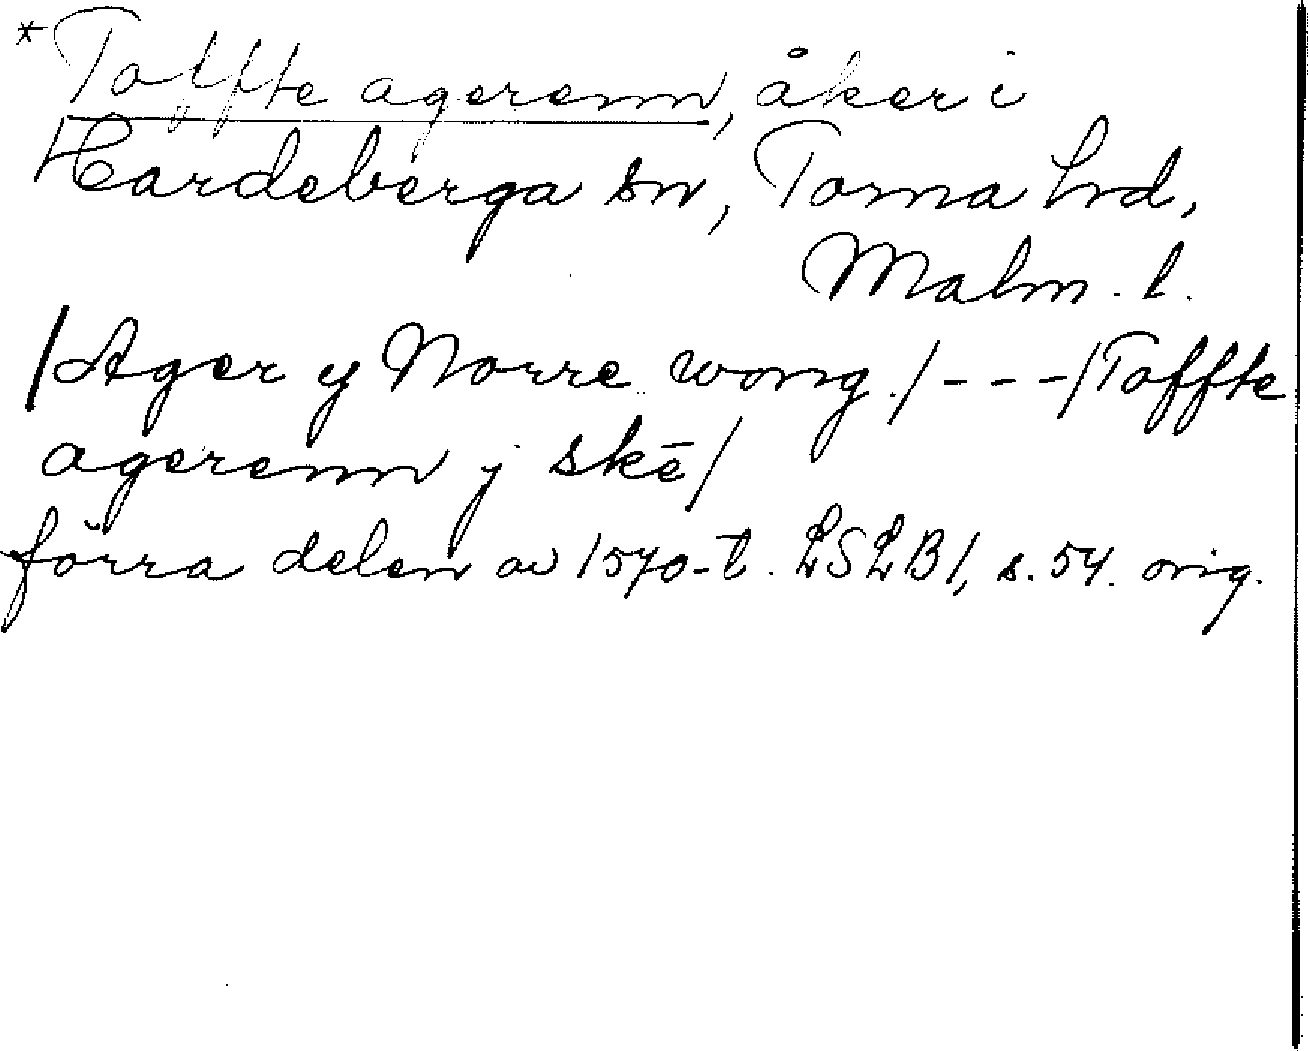 *Toffte agerenn, åker i
Hardeberga sn, Torna hd,
Malm. l.
/Ager y Norre wong./---/Toffte
agerenn j skē/
förra delen av 1570-t. LSLB1, s. 54. orig.